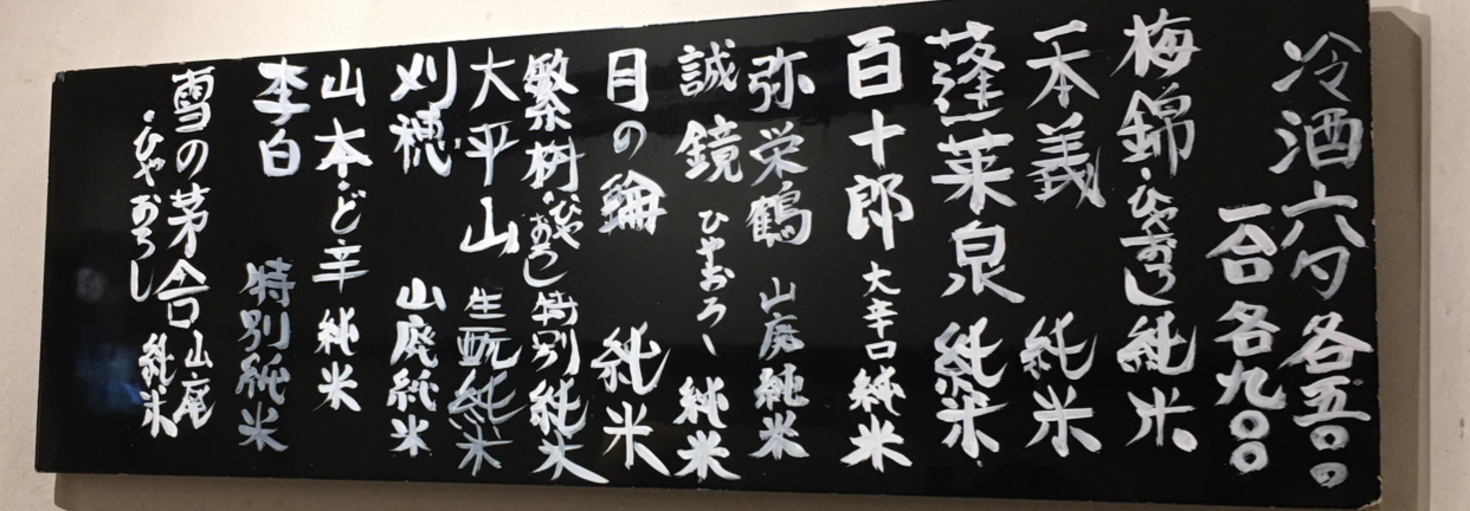 冷酒 六勺 各五〇〇
一合 各九〇〇
梅錦 ・ひやおろし 純米
一本義 純米
蓬莱泉 純米
百十郎 大辛口 純米
弥栄鶴 山廃 純米
誠鏡 ひやおろし 純米
月の輪 純米
繁桝 ・ひやおろし 特別 純米
大平山 生酛 純米
刈穂 山廃 純米
山本・ど辛 純米
李白 特別 純米
雪の茅舎 山廃 純米
・ひやおろし